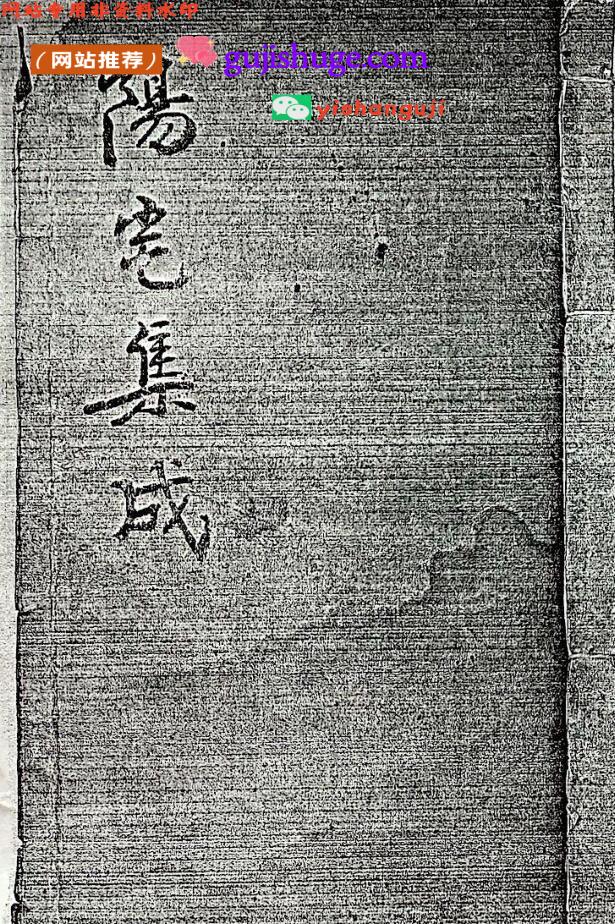 网站专用非资料水印
（网站推荐）
gujishuge.com
yishanguji
陽宅集成